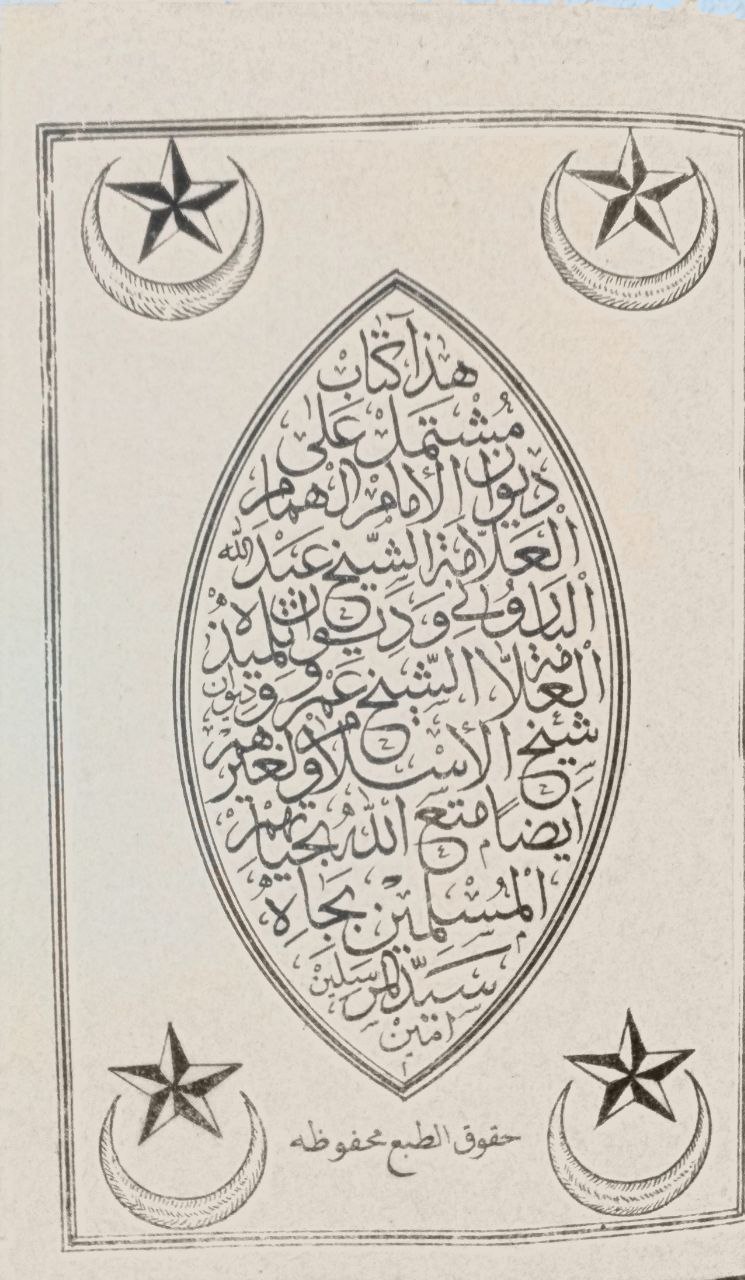 هذا كتاب
مشتمل على
ديوان الامام الهمام
العلامة الشيخ عبد الله
الباروني وديوان تلميذه
العلامة الشيخ عمرو وديوان
شيخ الاسلام ولغيرهم
ايضا متع الله بحياتهم
المسلمين بجاه
سيد المرسلين
امين
حقوق الطبع محفوظه